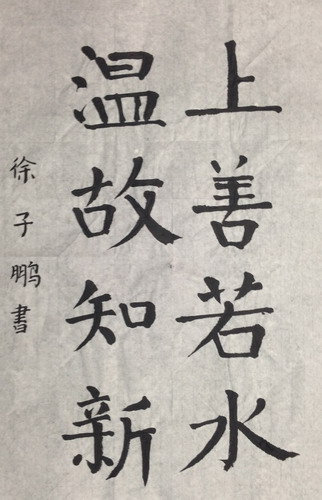 上善若水
温故知新
徐子鹏書